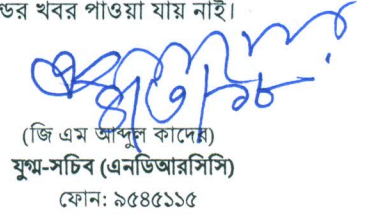 ন্ডের খবর পাওয়া যায় নাই।
(জি এম আব্দুল কাদের)
যুগ্ম-সচিব (এনডিআরসিসি)
ফোন: ৯৫৪৫১১৫